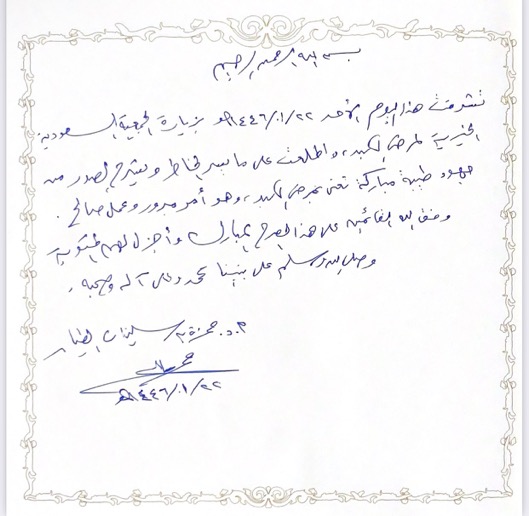 بسم الله الرحمن الرحيم
تشرفت هذا اليوم الأحد ١٤٤٦/٠١/٢٢هـ بزيارة الجمعية السعودية
الخيرية لمرضى الكبد، واطلعت على ما يسر الخاطر ويشرح الصدور من
جهود طيبة مباركة تعنى بمرضى الكبد، وهو أمر مبرور وعمل صالح.
وفق الله القائمين على هذا الصرح المبارك وأجزل لهم المثوبة
وصلى الله وسلم على نبينا محمد وعلى آله وصحبه.
أ.د. حمزة بن سليمان الطيار
١٤٤٦/٠١/٢٢هـ